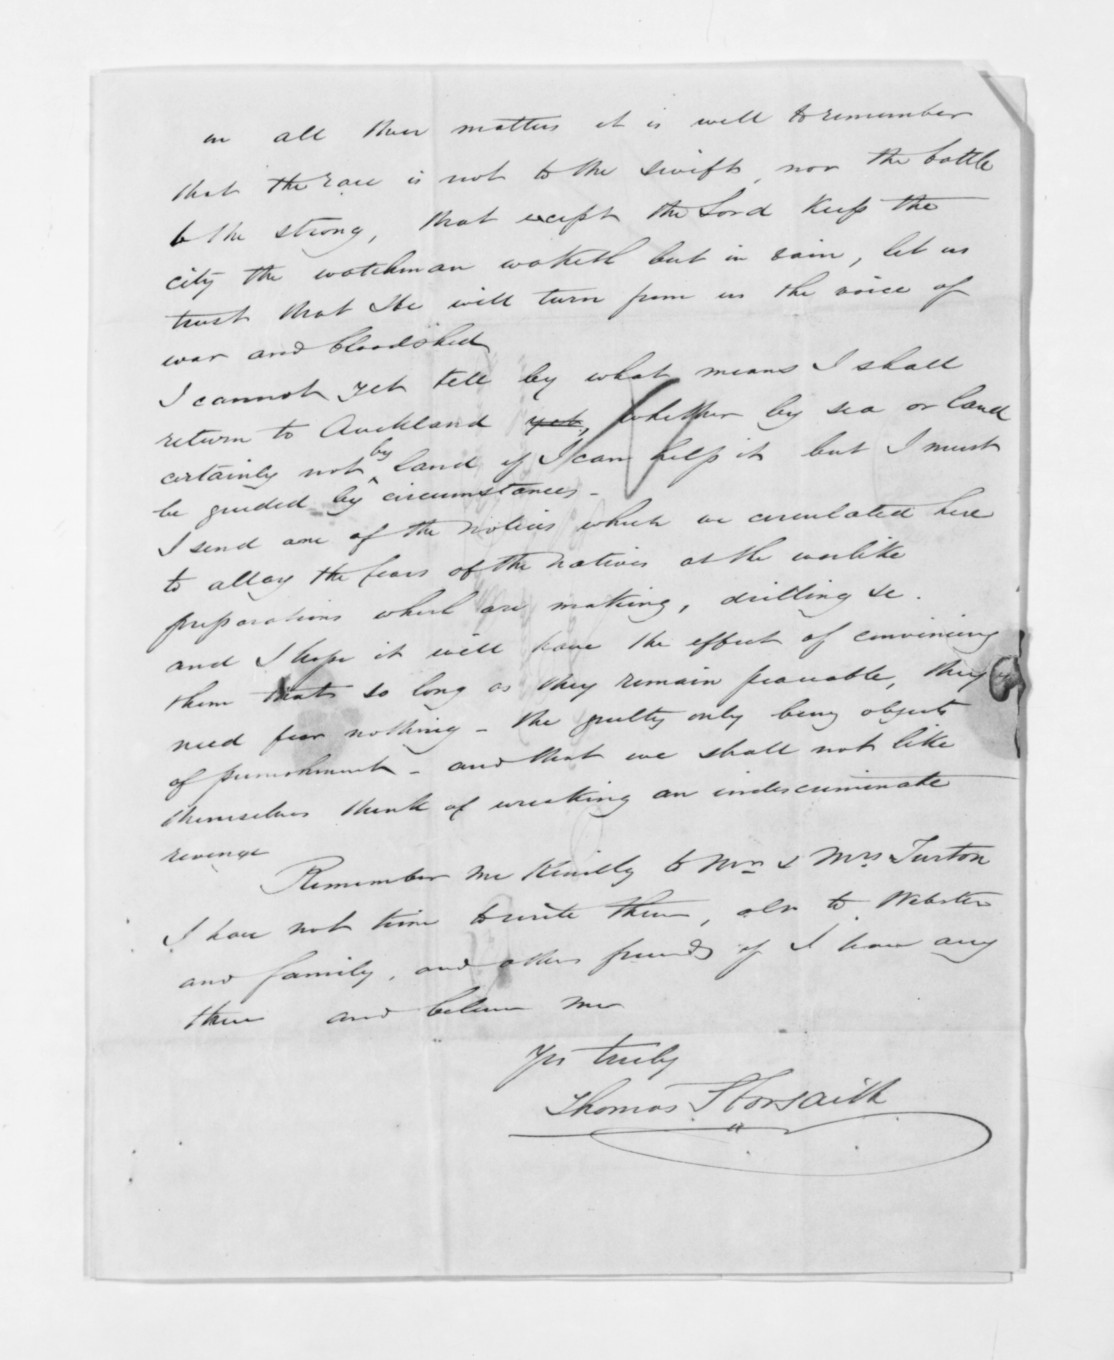 in all these matters it is well to remember
that the race is not to the swift, nor the battle
to the strong, that except the Lord keep the
city the watchman waketh but in vain, let us
trust that He will turn from us the voice of
war and bloodshed
I cannot yet tell by what means I shall
return to Auckland yet, whether by sea or land
certainly not by land if I can help it but I must
be guided by circumstances -
I send one of the Notices which we circulated here
to allay the fears of the Natives at the warlike
preparations which are making, drilling &c.
and I hope it will have the effect of convincing
them that so long as they remain peaceable, they
need fear nothing - the guilty only being objects
of punishment - and that we shall not like
themselves think of wreaking an indiscriminate
revenge
Remember me kindly to Mr. & Mrs Turton
I have not time to write them, also to Webster
and family, and other friends if I have any
there and believe me
Yrs truly
Thomas S Forsaith